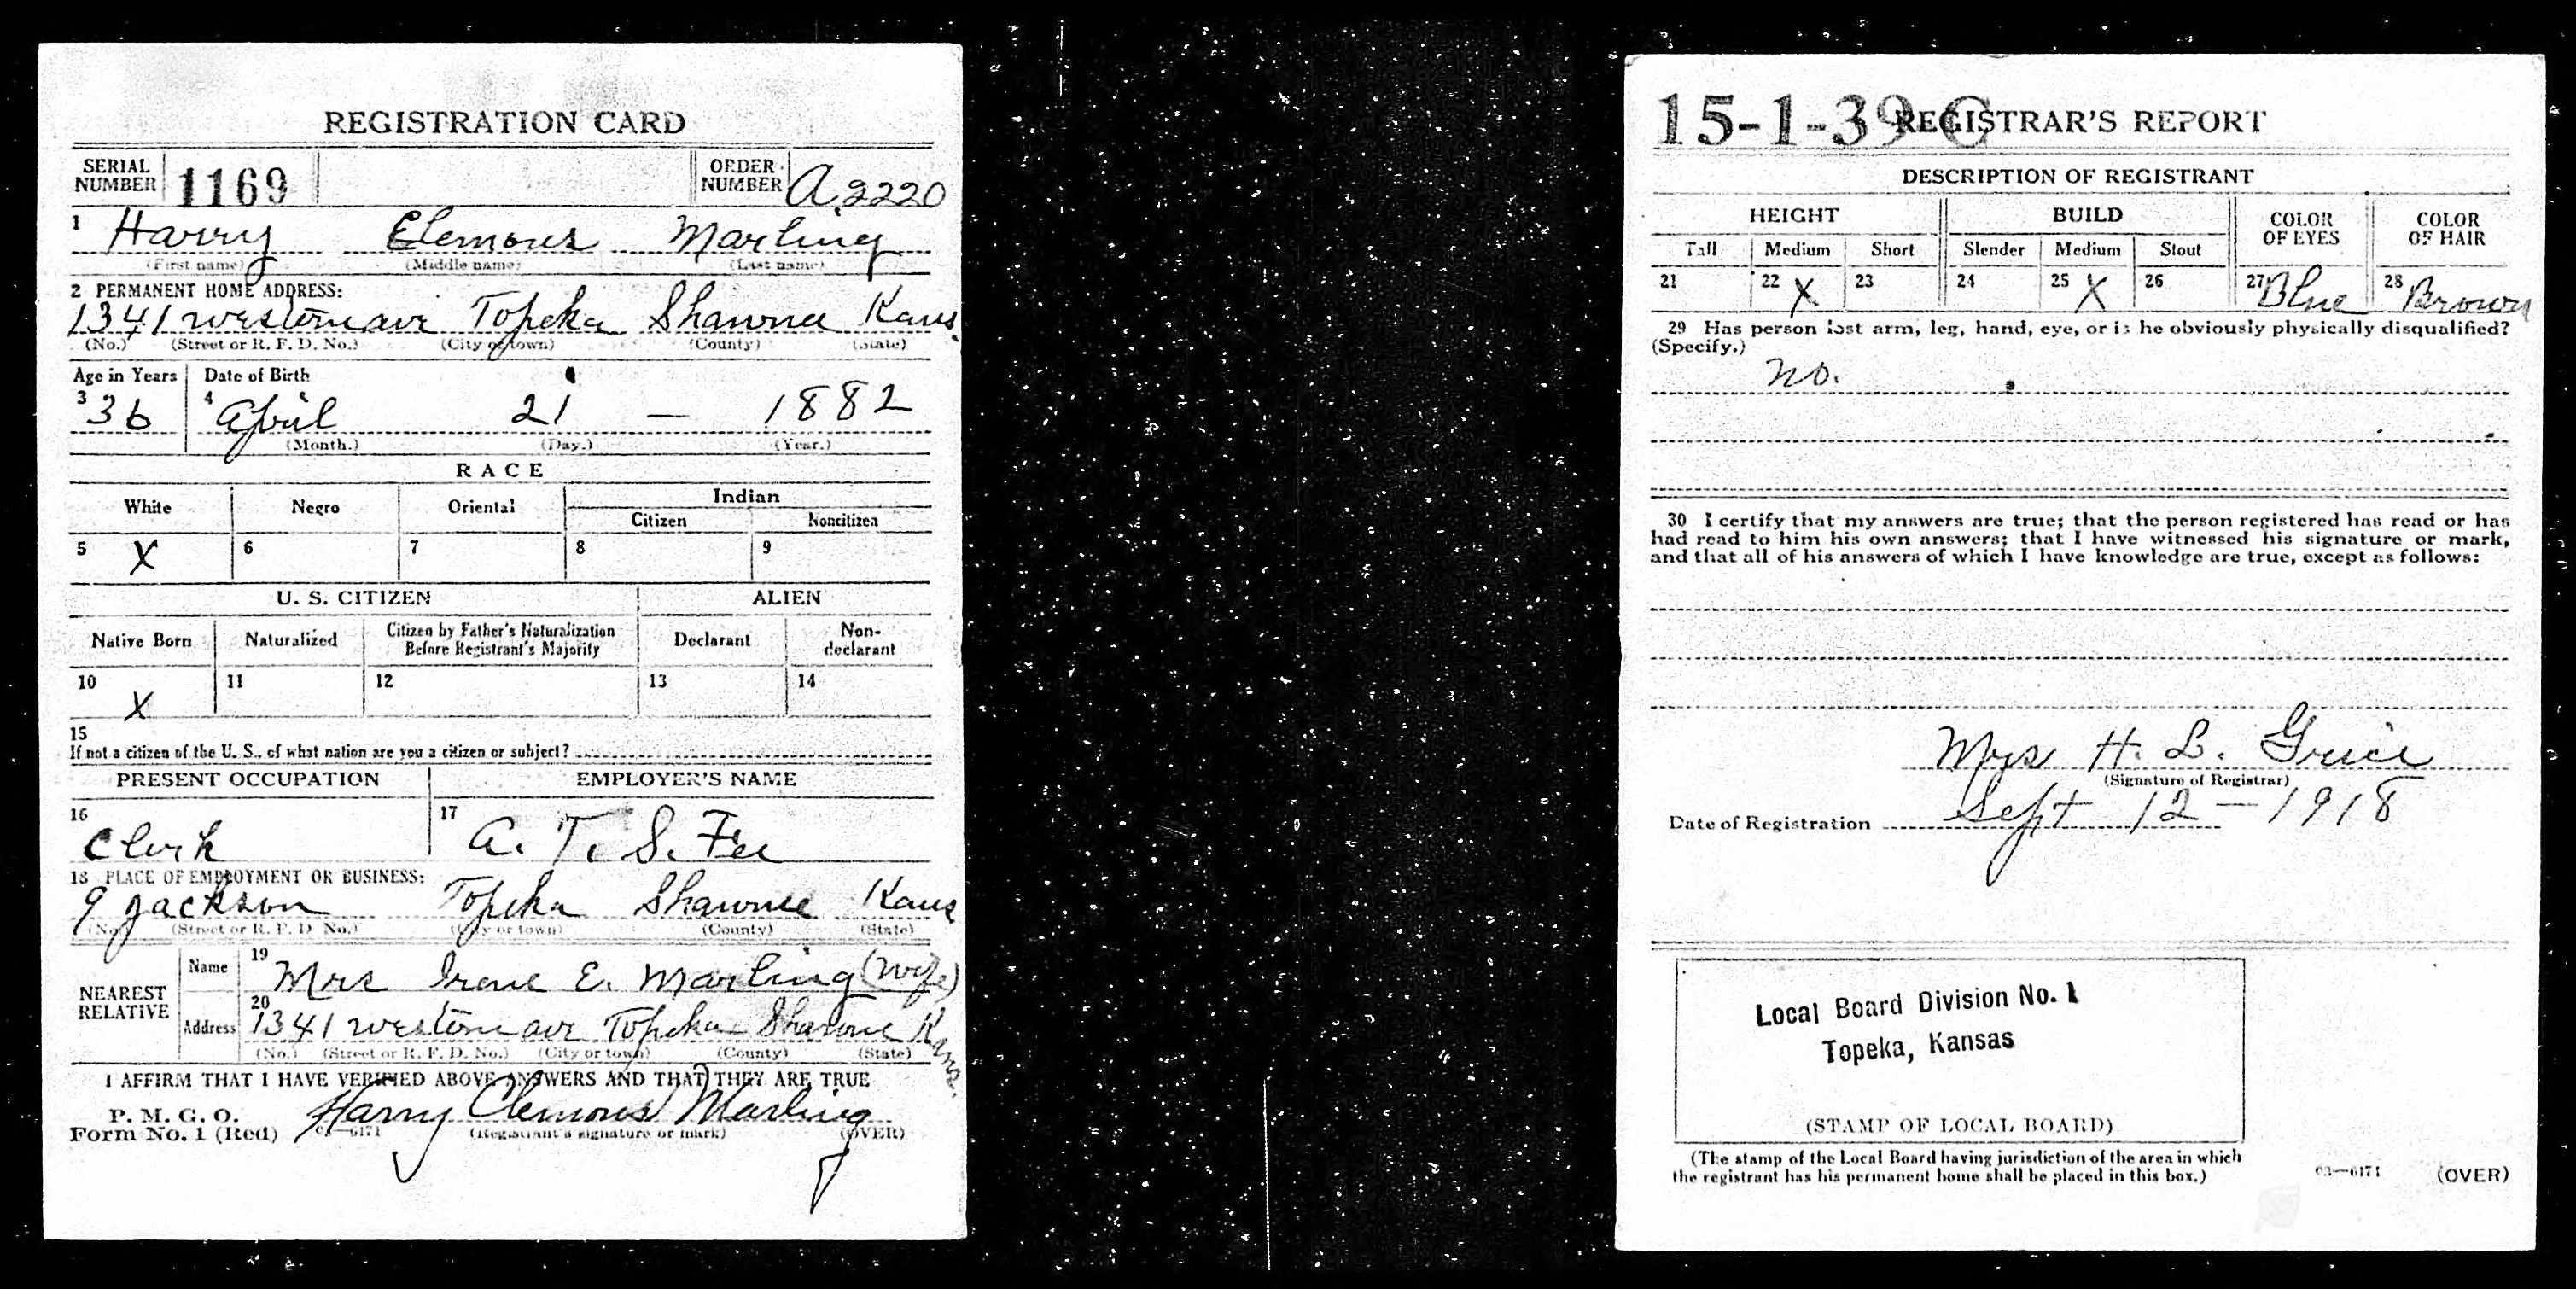 REGISTRATION CARD
SERIAL NUMBER 1169 ORDER NUMBER A2220
1 Harry Clemons Marling
(First name) (Middle name) (Last name)
2 PERMANENT HOME ADDRESS:
1341 western ave Topeka Shawnee Kans
(No.) (Street or R. F. D. No.) (City or town) (County) (State)
Age in Years Date of Birth
3 36 4 April 21 — 1882
(Month.) (Day.) (Year.)
RACE
White Negro Oriental Indian
Citizen Noncitizen
5 X 6 7 8 9
U. S. CITIZEN ALIEN
Native Born Naturalized Citizen by Father's Naturalization Before Registrant's Majority Declarant Non-declarant
10 X 11 12 13 14
15
If not a citizen of the U. S., of what nation are you a citizen or subject?
PRESENT OCCUPATION EMPLOYER'S NAME
16 Clerk 17 A. T. S. Fee
18 PLACE OF EMPLOYMENT OR BUSINESS:
9 Jackson Topeka Shawnee Kans
(No.) (Street or R. F. D. No.) (City or town) (County) (State)
NEAREST RELATIVE
Name 19 Mrs Irene E. Marling (Wife)
Address 20 1341 western ave Topeka Shawnee Kans.
(No.) (Street or R. F. D. No.) (City or town) (County) (State)
I AFFIRM THAT I HAVE VERIFIED ABOVE ANSWERS AND THAT THEY ARE TRUE
P. M. G. O.
Form No. 1 (Red) 03—6171 Harry Clemons Marling
(Registrant's signature or mark) (OVER)
15-1-39 C REGISTRAR'S REPORT
DESCRIPTION OF REGISTRANT
HEIGHT BUILD COLOR OF EYES COLOR OF HAIR
Tall Medium Short Slender Medium Stout
21 22 X 23 24 25 X 26 27 Blue 28 Brown
29 Has person lost arm, leg, hand, eye, or is he obviously physically disqualified?
(Specify.)
no.
30 I certify that my answers are true; that the person registered has read or has
had read to him his own answers; that I have witnessed his signature or mark,
and that all of his answers of which I have knowledge are true, except as follows:
Mrs H. L. Grice
(Signature of Registrar)
Date of Registration Sept 12 — 1918
Local Board Division No. 1
Topeka, Kansas
(STAMP OF LOCAL BOARD)
(The stamp of the Local Board having jurisdiction of the area in which
the registrant has his permanent home shall be placed in this box.)
03—6171 (OVER)